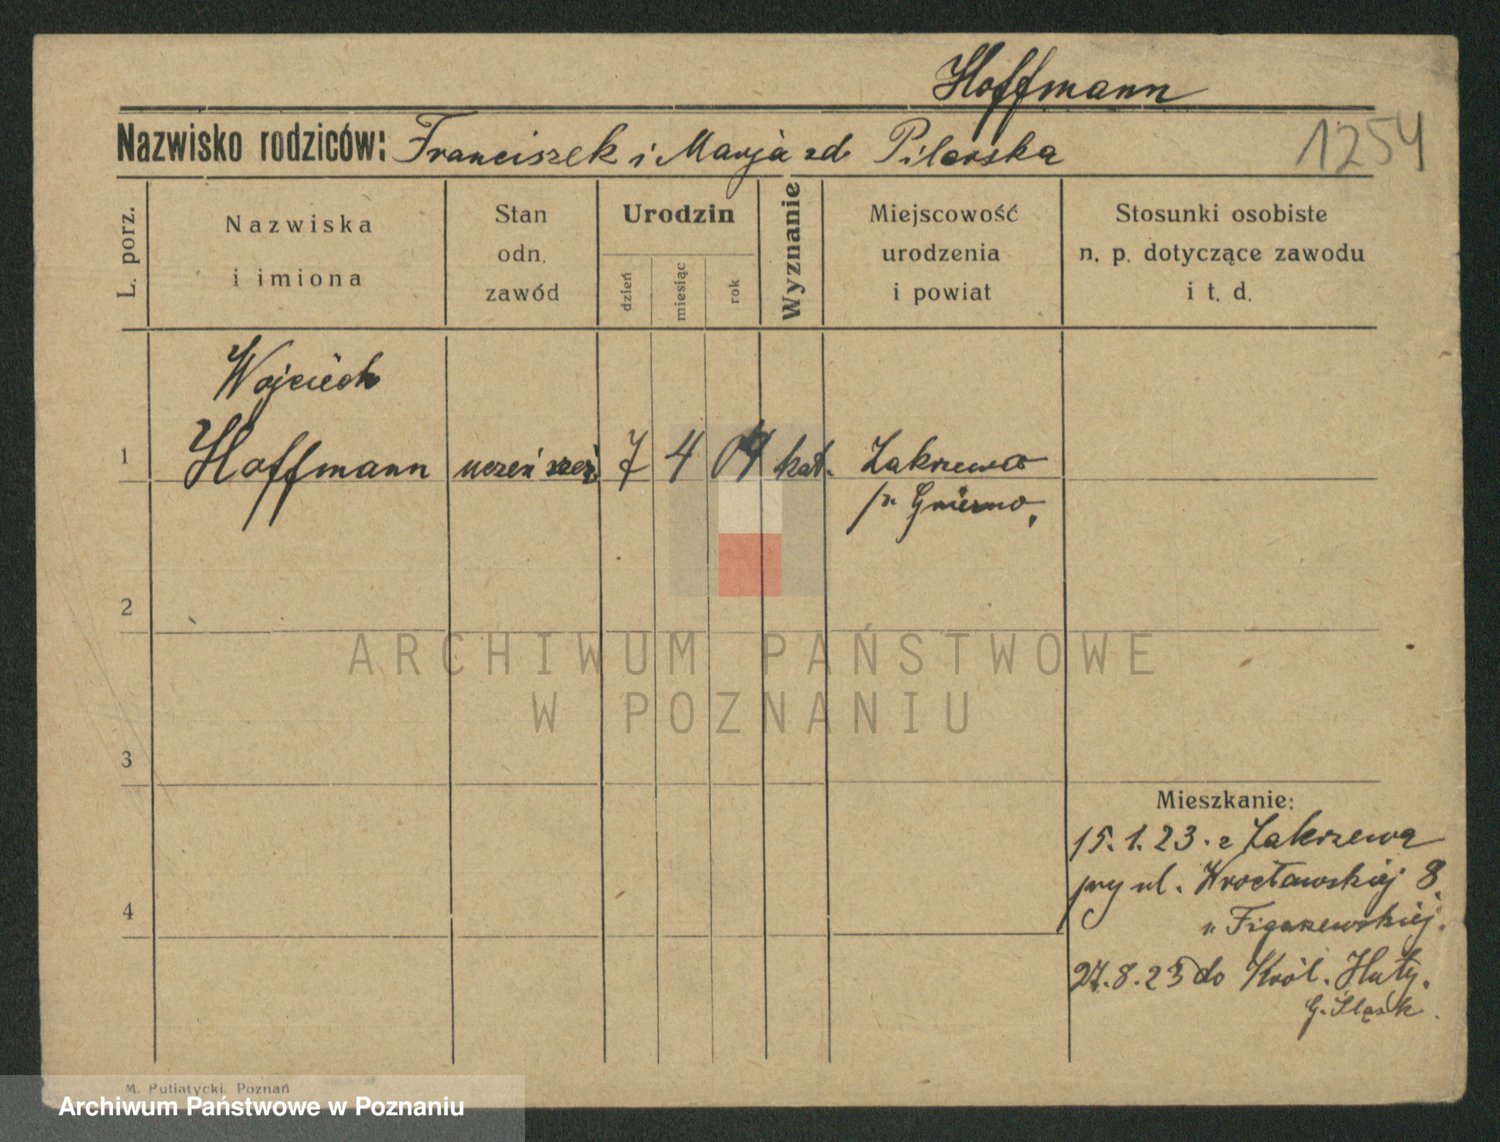 Hoffmann
Nazwisko rodziców: Franciszek i Marja zd Pilarska
1254
L. porz.
Nazwiska
i imiona
Stan
odn.
zawód
Urodzin
dzień
miesiąc
rok
Wyznanie
Miejscowość
urodzenia
i powiat
Stosunki osobiste
n. p. dotyczące zawodu
i t. d.
Wojciech
1 Hoffmann uczeń 7 4 04 kat. Zakrzewo
p. Gniezno,
2
ARCHIWUM PAŃSTWOWE
W POZNANIU
3
Mieszkanie:
15.1.23. z Zakrzewa
przy ul. Wrocławskiej 8.
4
u Figaszewskiej.
27.8.23 do Król. Huty.
G. Śląsk.
M. Putiatycki, Poznań
Archiwum Państwowe w Poznaniu